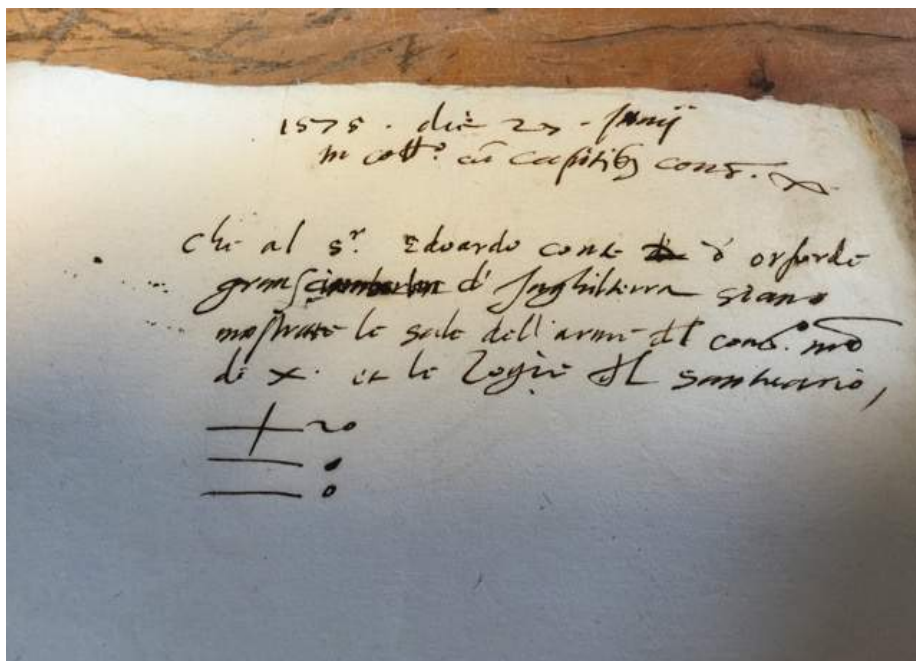 1575 . die 27 . Junij
in coll.° cũ Capitibz cons. X
che al s.r Edoardo conte d' orforde
gran sciamberlan d' Inghilterra siano
mostrate le sale dell'arme dl cons.°
di X. et le Zogie dl santuario,
20
0
0